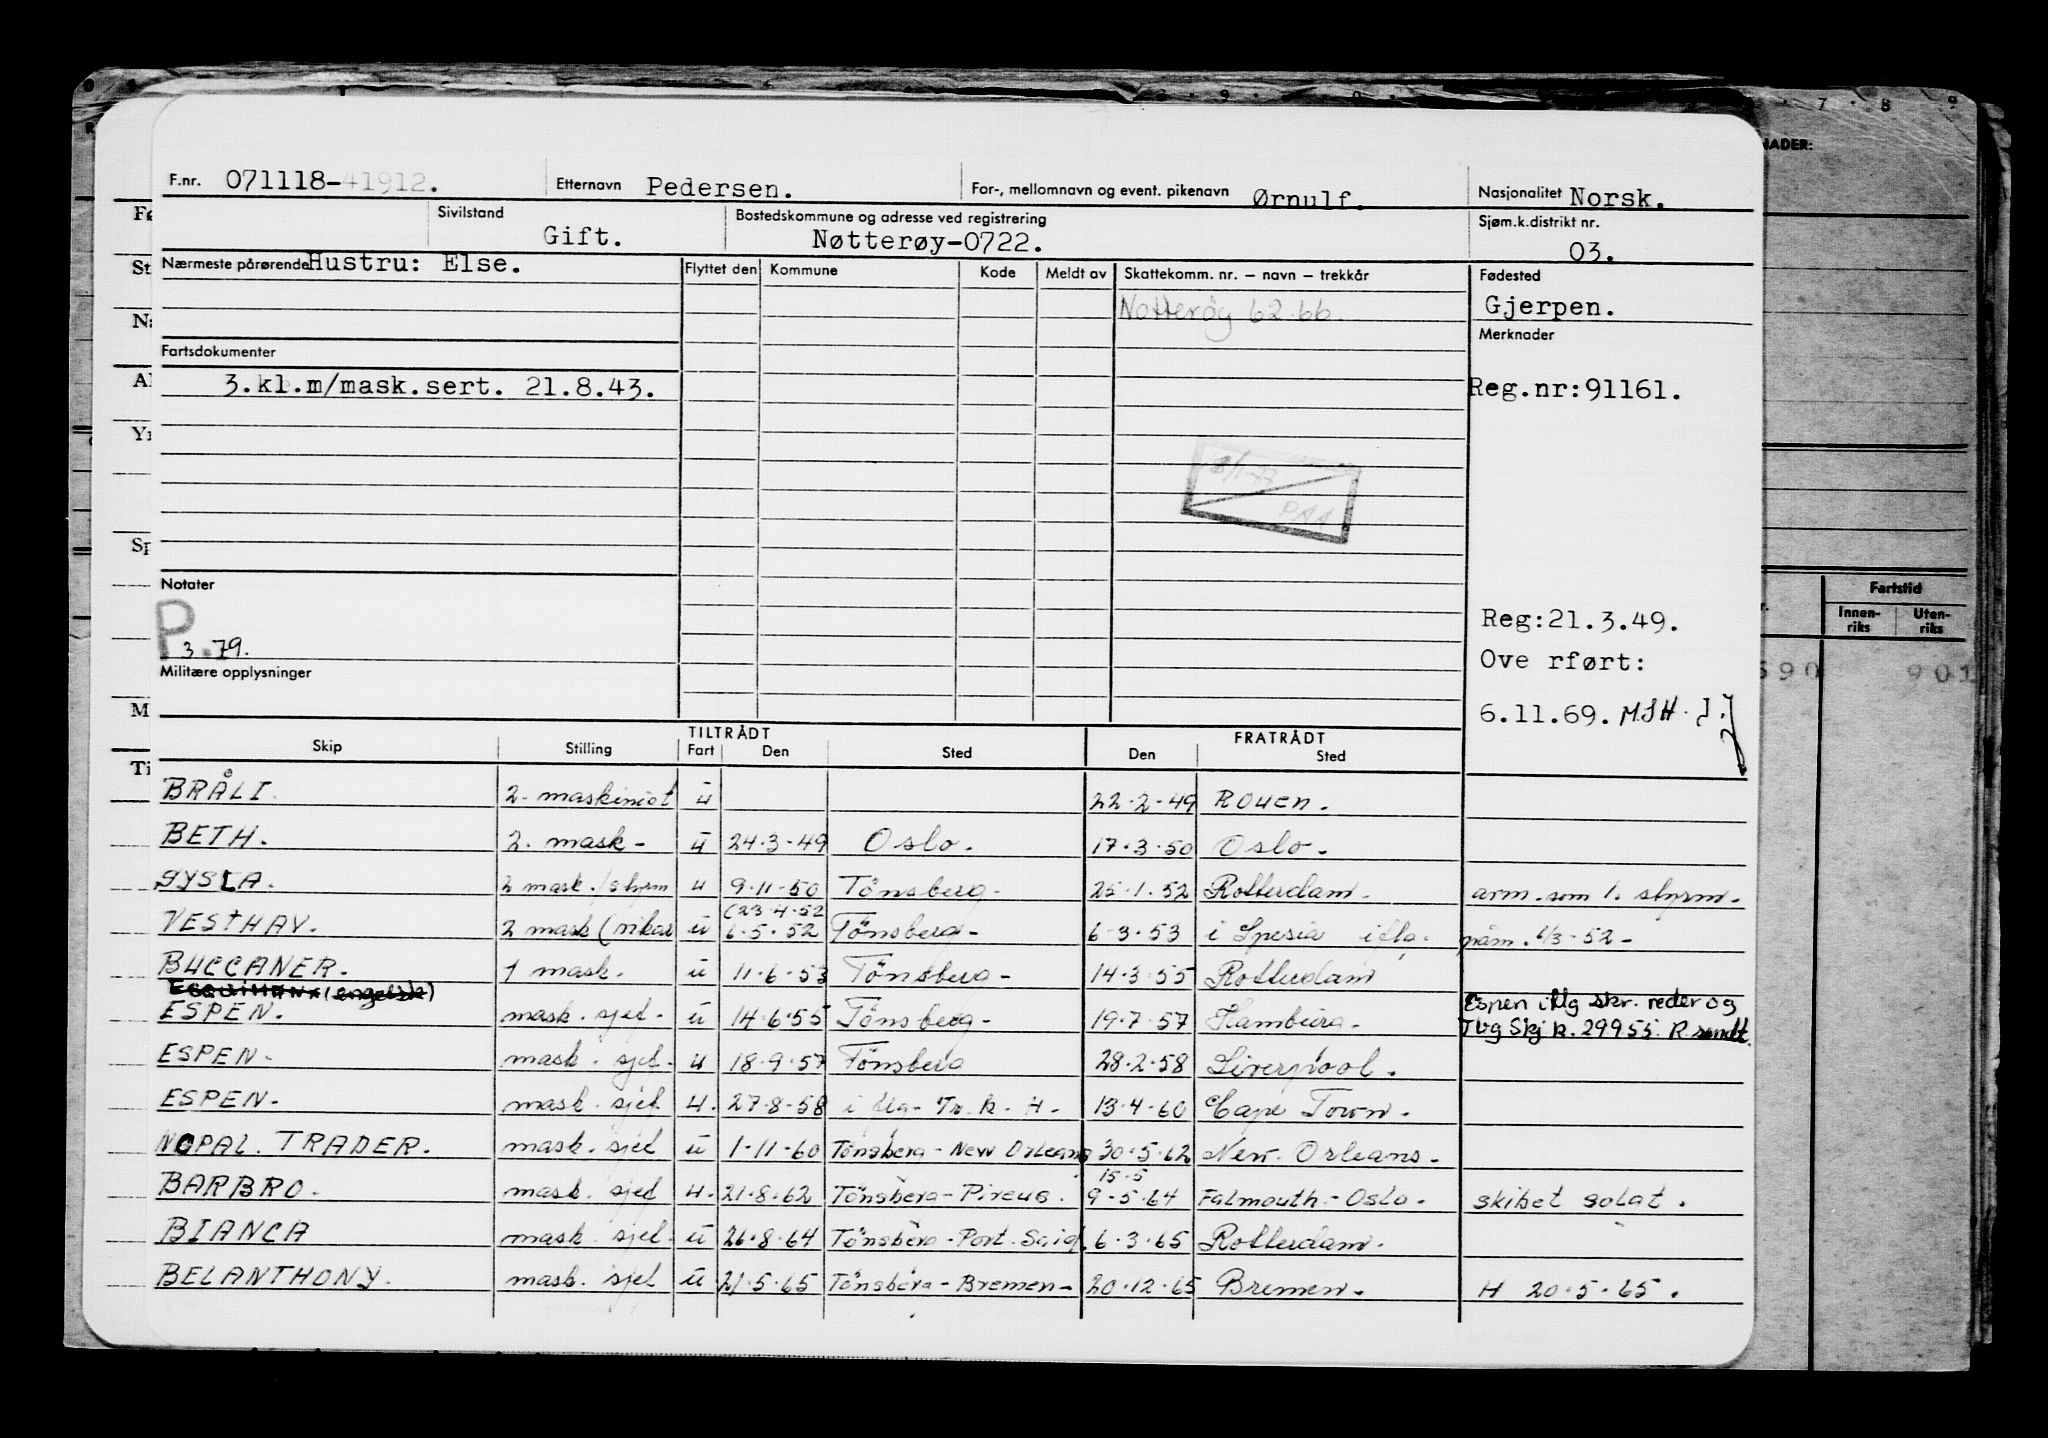 F.nr. 071118-41912. Etternavn Pedersen. For-, mellomnavn og event. pikenavn Ørnulf. Nasjonalitet Norsk.
Sivilstand Gift. Bostedskommune og adresse ved registrering Nøtterøy-0722. Sjøm.k.distrikt nr. 03.
Nærmeste pårørende Hustru: Else. Flyttet den Kommune Kode Meldt av Skattekomm. nr. – navn – trekkår Fødested
Nøtterøy 62.66. Gjerpen.
Merknader
Fartsdokumenter
3.kl.m/mask.sert. 21.8.43. Reg.nr:91161.
PAA
Notater
P 3.79.
Reg:21.3.49.
Ove rført:
Militære opplysninger
6.11.69. MSH.
TILTRÅDT FRATRÅDT
Skip Stilling Fart Den Sted Den Sted
BRÅLI. 2. maskinist u 22-2-49 Rouen.
BETH. 2. mask- u 24-3-49 Oslo. 17-3-50 Oslo.
SYSLA. 2 mask./styrm u 9-11-50 Tönsberg- 25-1-52 Rotterdam. arm. som 1. styrm.
(23-4-52
VESTHAV. 2 mask (vikar u 6-5-52 Tönsberg- 6-3-53 i Spesia
BUCCANER. 1 mask. u 11-6-53 Tönsberg- 14-3-55 Rotterdam
(engelsk)
ESPEN. mask. sjef- u 14-6-55 Tönsberg- 19-7-57 Hamburg. Espen iflg skr. reder og
Tbg Skj k. 29955. R sendt.
ESPEN- mask. sjef- u 18-9-57 Tönsberg 28-2-58 Liverpool.
ESPEN- mask. sjef u. 27-8-58 13-4-60 Cape Town.
NOPAL. TRADER. mask. sjef u 1-11-60 Tönsberg-New Orleans 30-5-62 New. Orleans-
15-5
BARBRO. mask. sjef u. 21-8-62 Tönsberg-Pireus. 9-5-64 Falmouth-Oslo. skibet solgt.
BIANCA mask. sjef- u 26-8-64 Tönsberg-Port. Said. 6-3-65 Rotterdam.
BELANTHONY. mask. sjef u 21-5-65 Tönsberg-Bremen- 20-12-65 Bremen. H 20-5-65.
Fartstid
Innen-riks Uten-riks
590 901